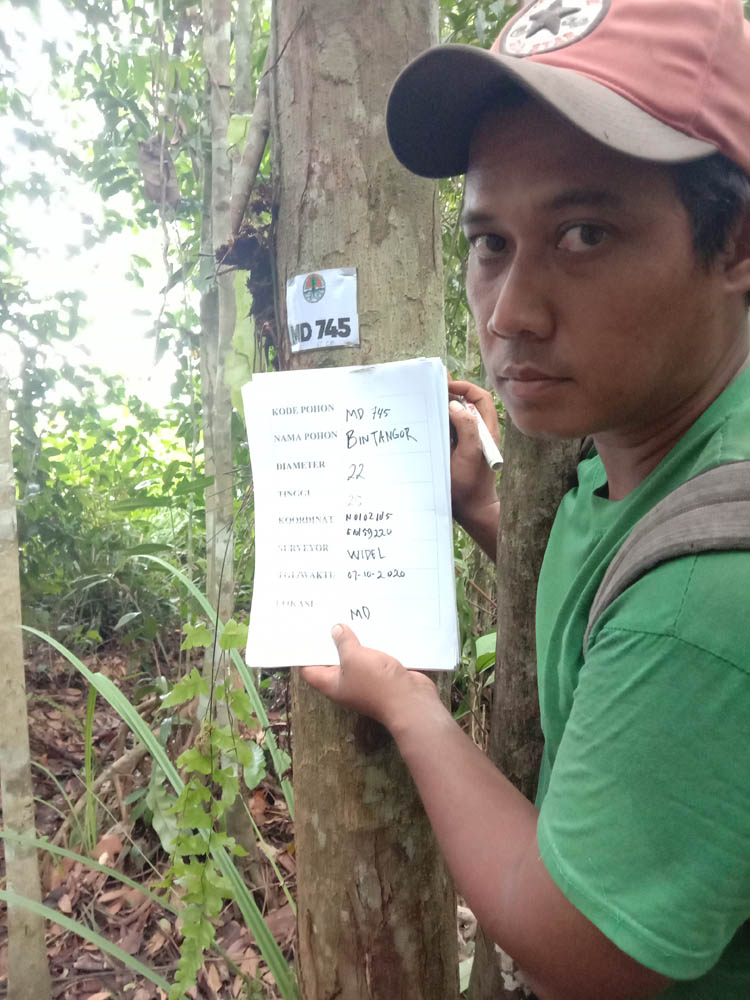 MD 745
KODE POHON MD 745
NAMA POHON BINTANGOR
DIAMETER 22
TINGGI
KOORDINAT N0102105
SURVEYOR WIDEL
TGL/WAKTU 07-10-2020
LOKASI MD